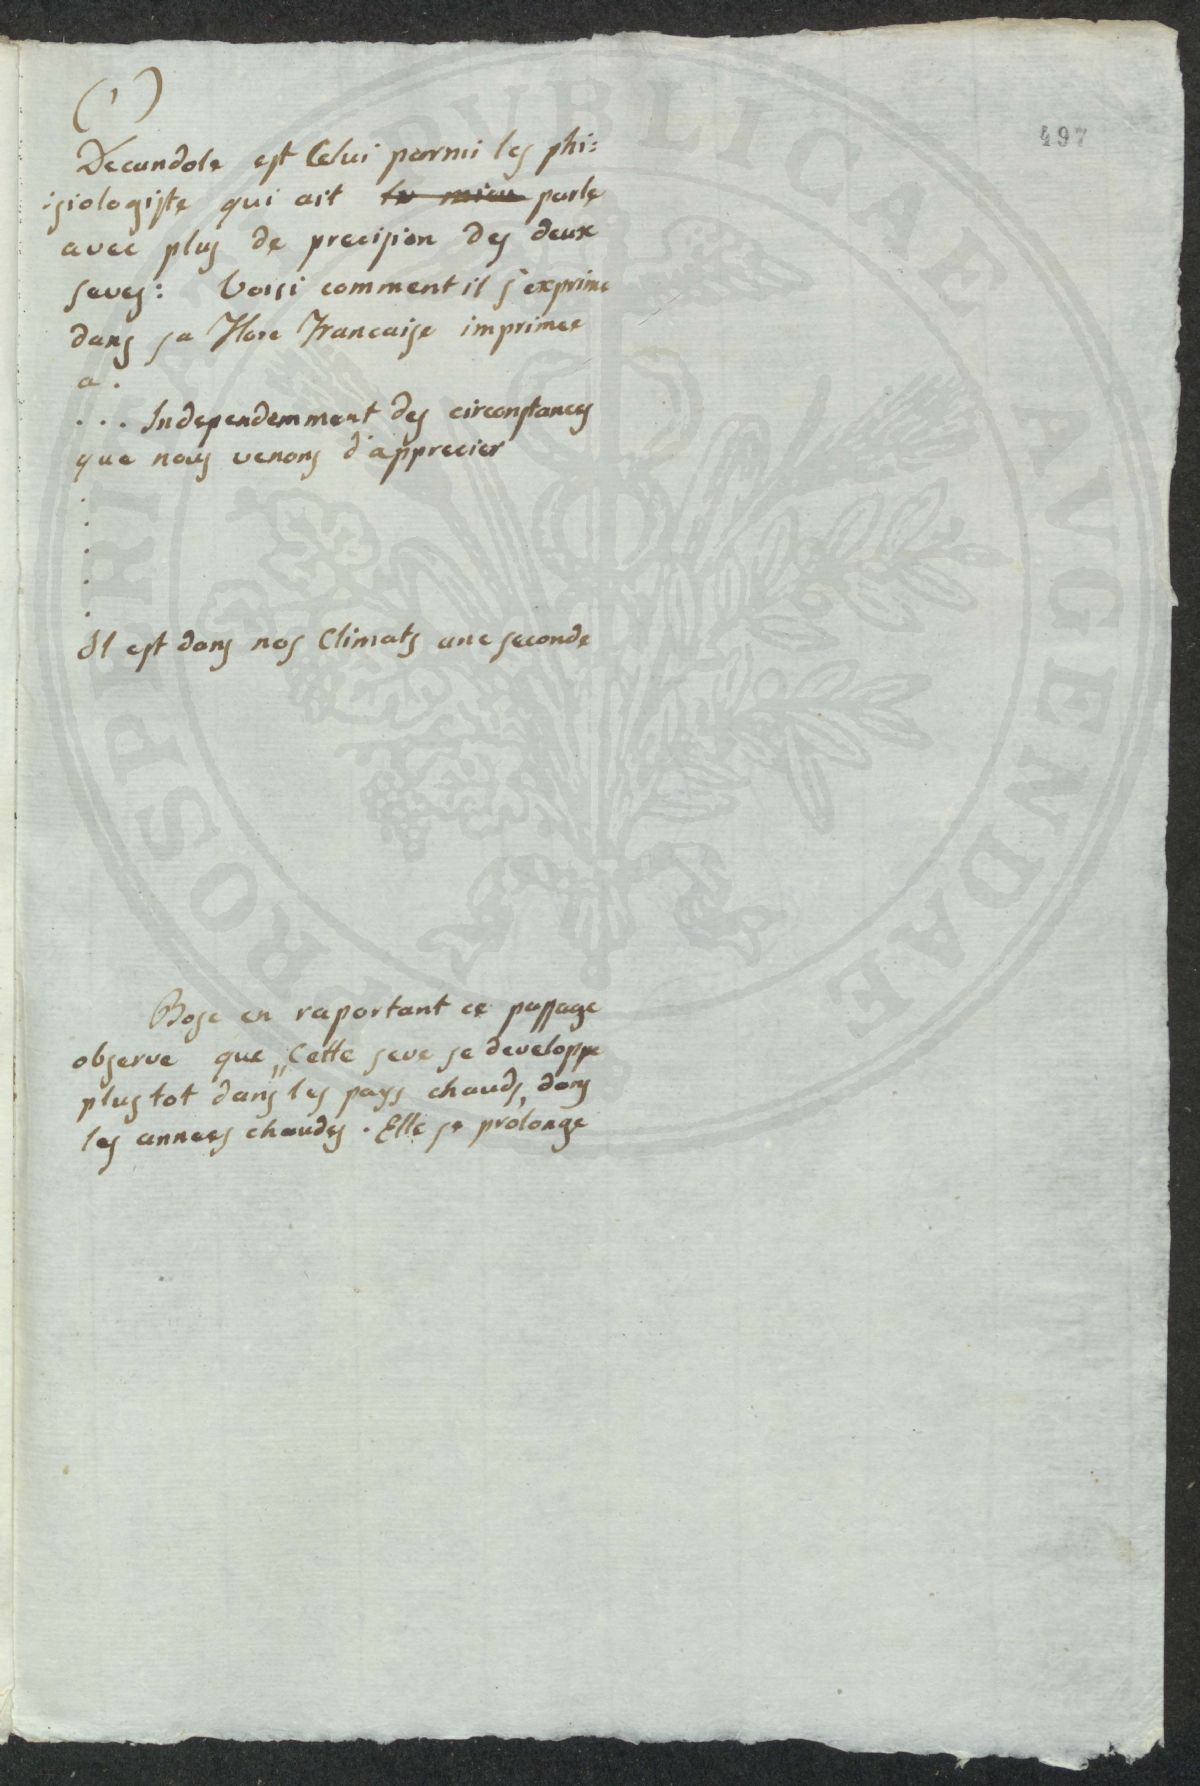 497
(1)
Decandole est Celui parmi les phi=
=siologiste qui ait le mieu parle
avec plus de precision des deux
seves: Voisi comment il s'exprime
dans sa Flore Francaise imprimee
a.
... Independemment des circonstances
que nous venons d'apprecier
.
.
.
.
.
Il est dans nos Climats une seconde
Bosc en raportant ce passage
observe que „Cette seve se developpe
plus tot dans les pays chauds, dans
les annees chaudes. Elle se prolonge
PROSPERITATI PUBLICAE AVGENDAE